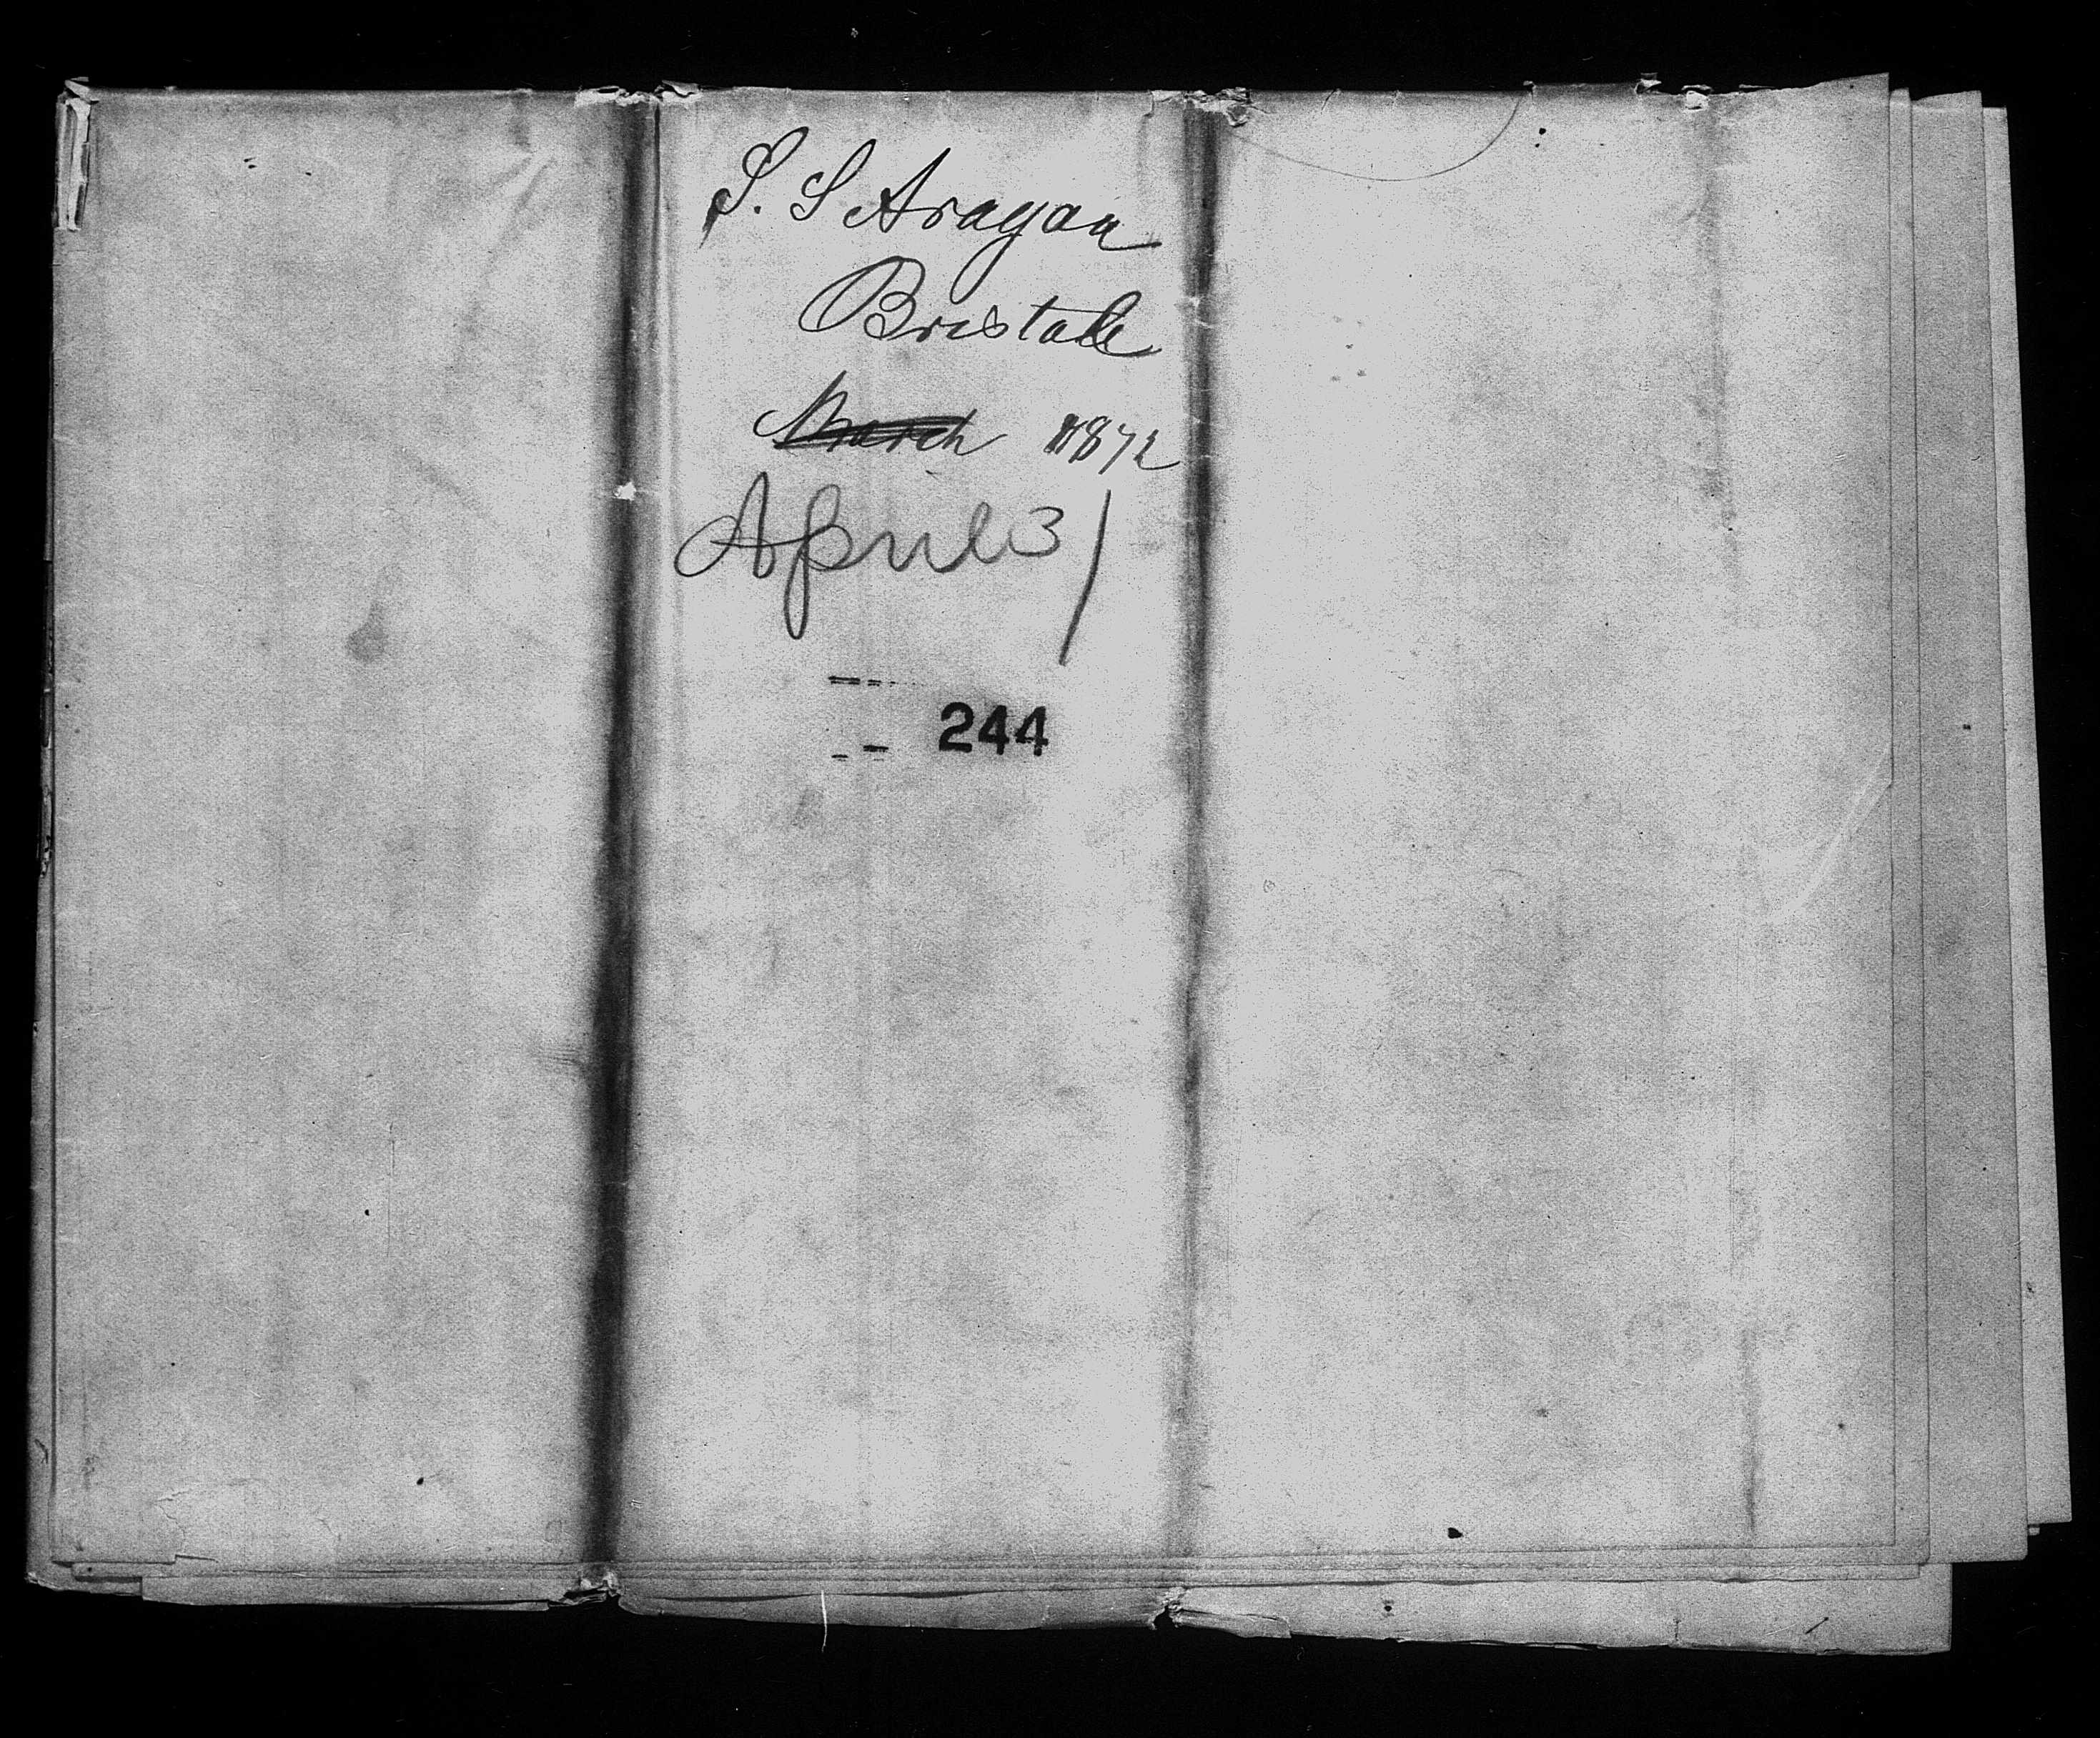 S. S Aragon
Bristol
March 1872
April 3/
244